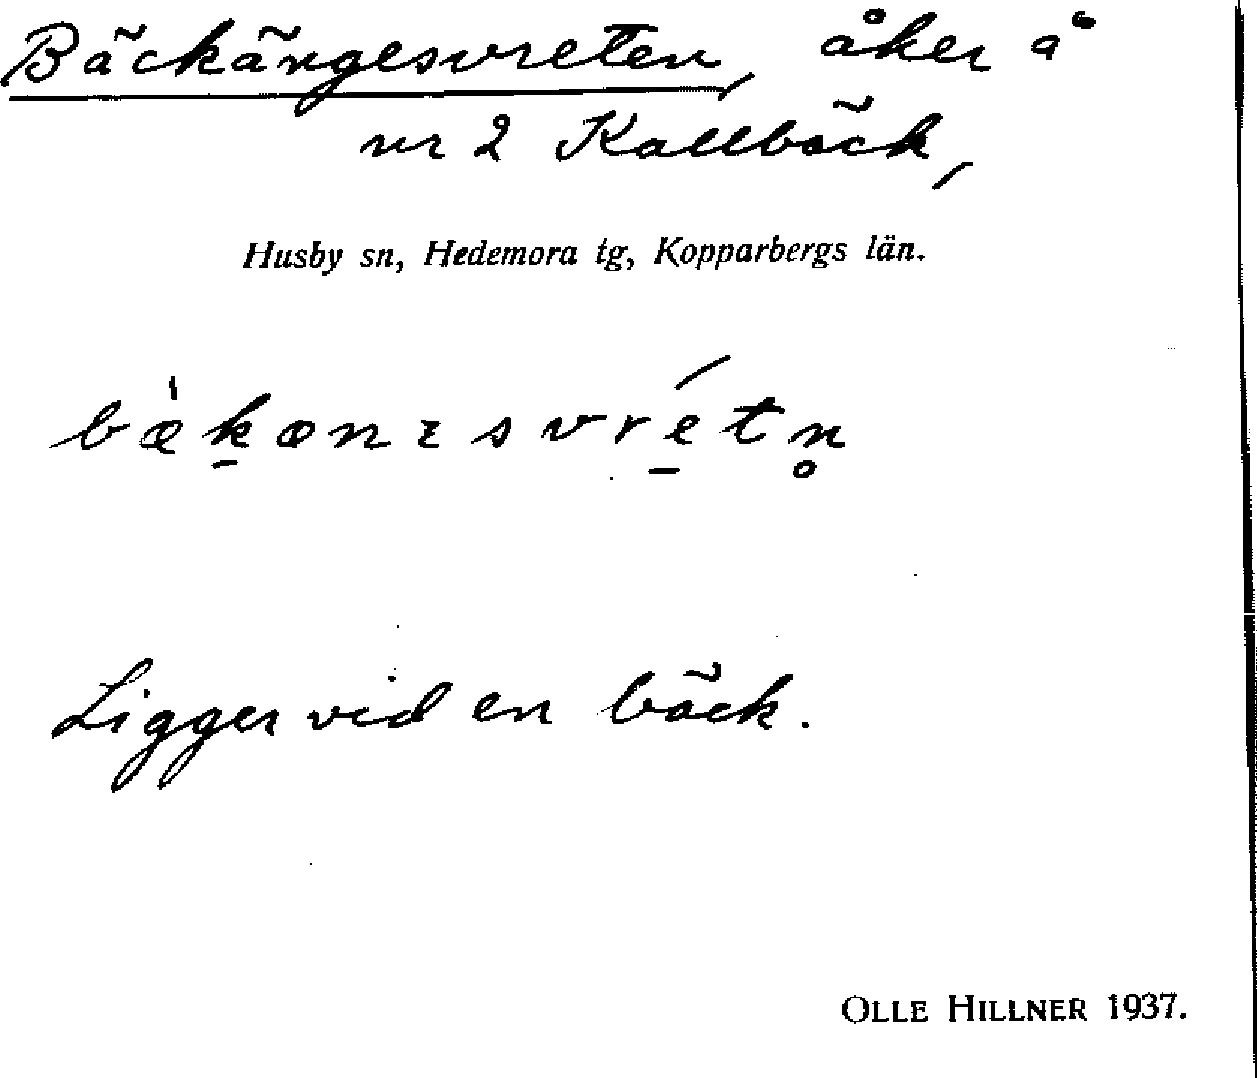 Bäckängesvreten, åker å
nr 2 Kallbäck,
Husby sn, Hedemora tg, Kopparbergs län.
bæ̀k̠ænɛsvré̠tn̥
Ligger vid en bäck.
OLLE HILLNER 1937.